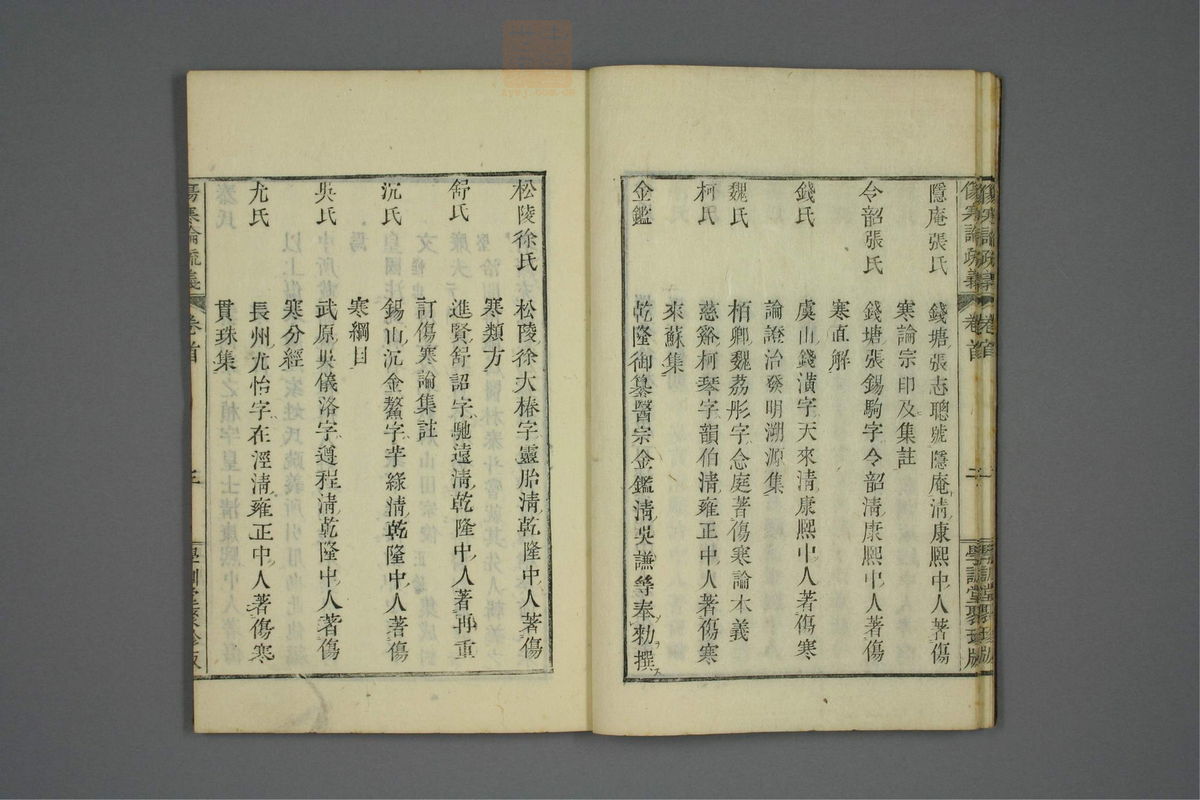 傷寒論疏義 卷首 二 學訓堂聚珍版
隱庵張氏 錢塘張志聰號隱庵清康熙中人著傷
寒論宗印及集註
令韶張氏 錢塘張錫駒字令韶清康熙中人著傷
寒直解
錢氏 虞山錢潢字天來清康熙中人著傷寒
論證治發明溯源集
魏氏 栢鄉魏荔彤字念庭著傷寒論本義
柯氏 慈谿柯琴字韻伯清雍正中人著傷寒
來蘇集
金鑑 乾隆御纂醫宗金鑑清吳謙等奉勅撰
松陵徐氏 松陵徐大椿字靈胎清乾隆中人著傷
寒類方
舒氏 進賢舒詔字馳遠清乾隆中人著再重
訂傷寒論集註
沉氏 錫山沉金鰲字芊綠清乾隆中人著傷
寒綱目
吳氏 武原吳儀洛字遵程清乾隆中人著傷
寒分經
尤氏 長州尤怡字在涇清雍正中人著傷寒
貫珠集
傷寒論疏義 卷首